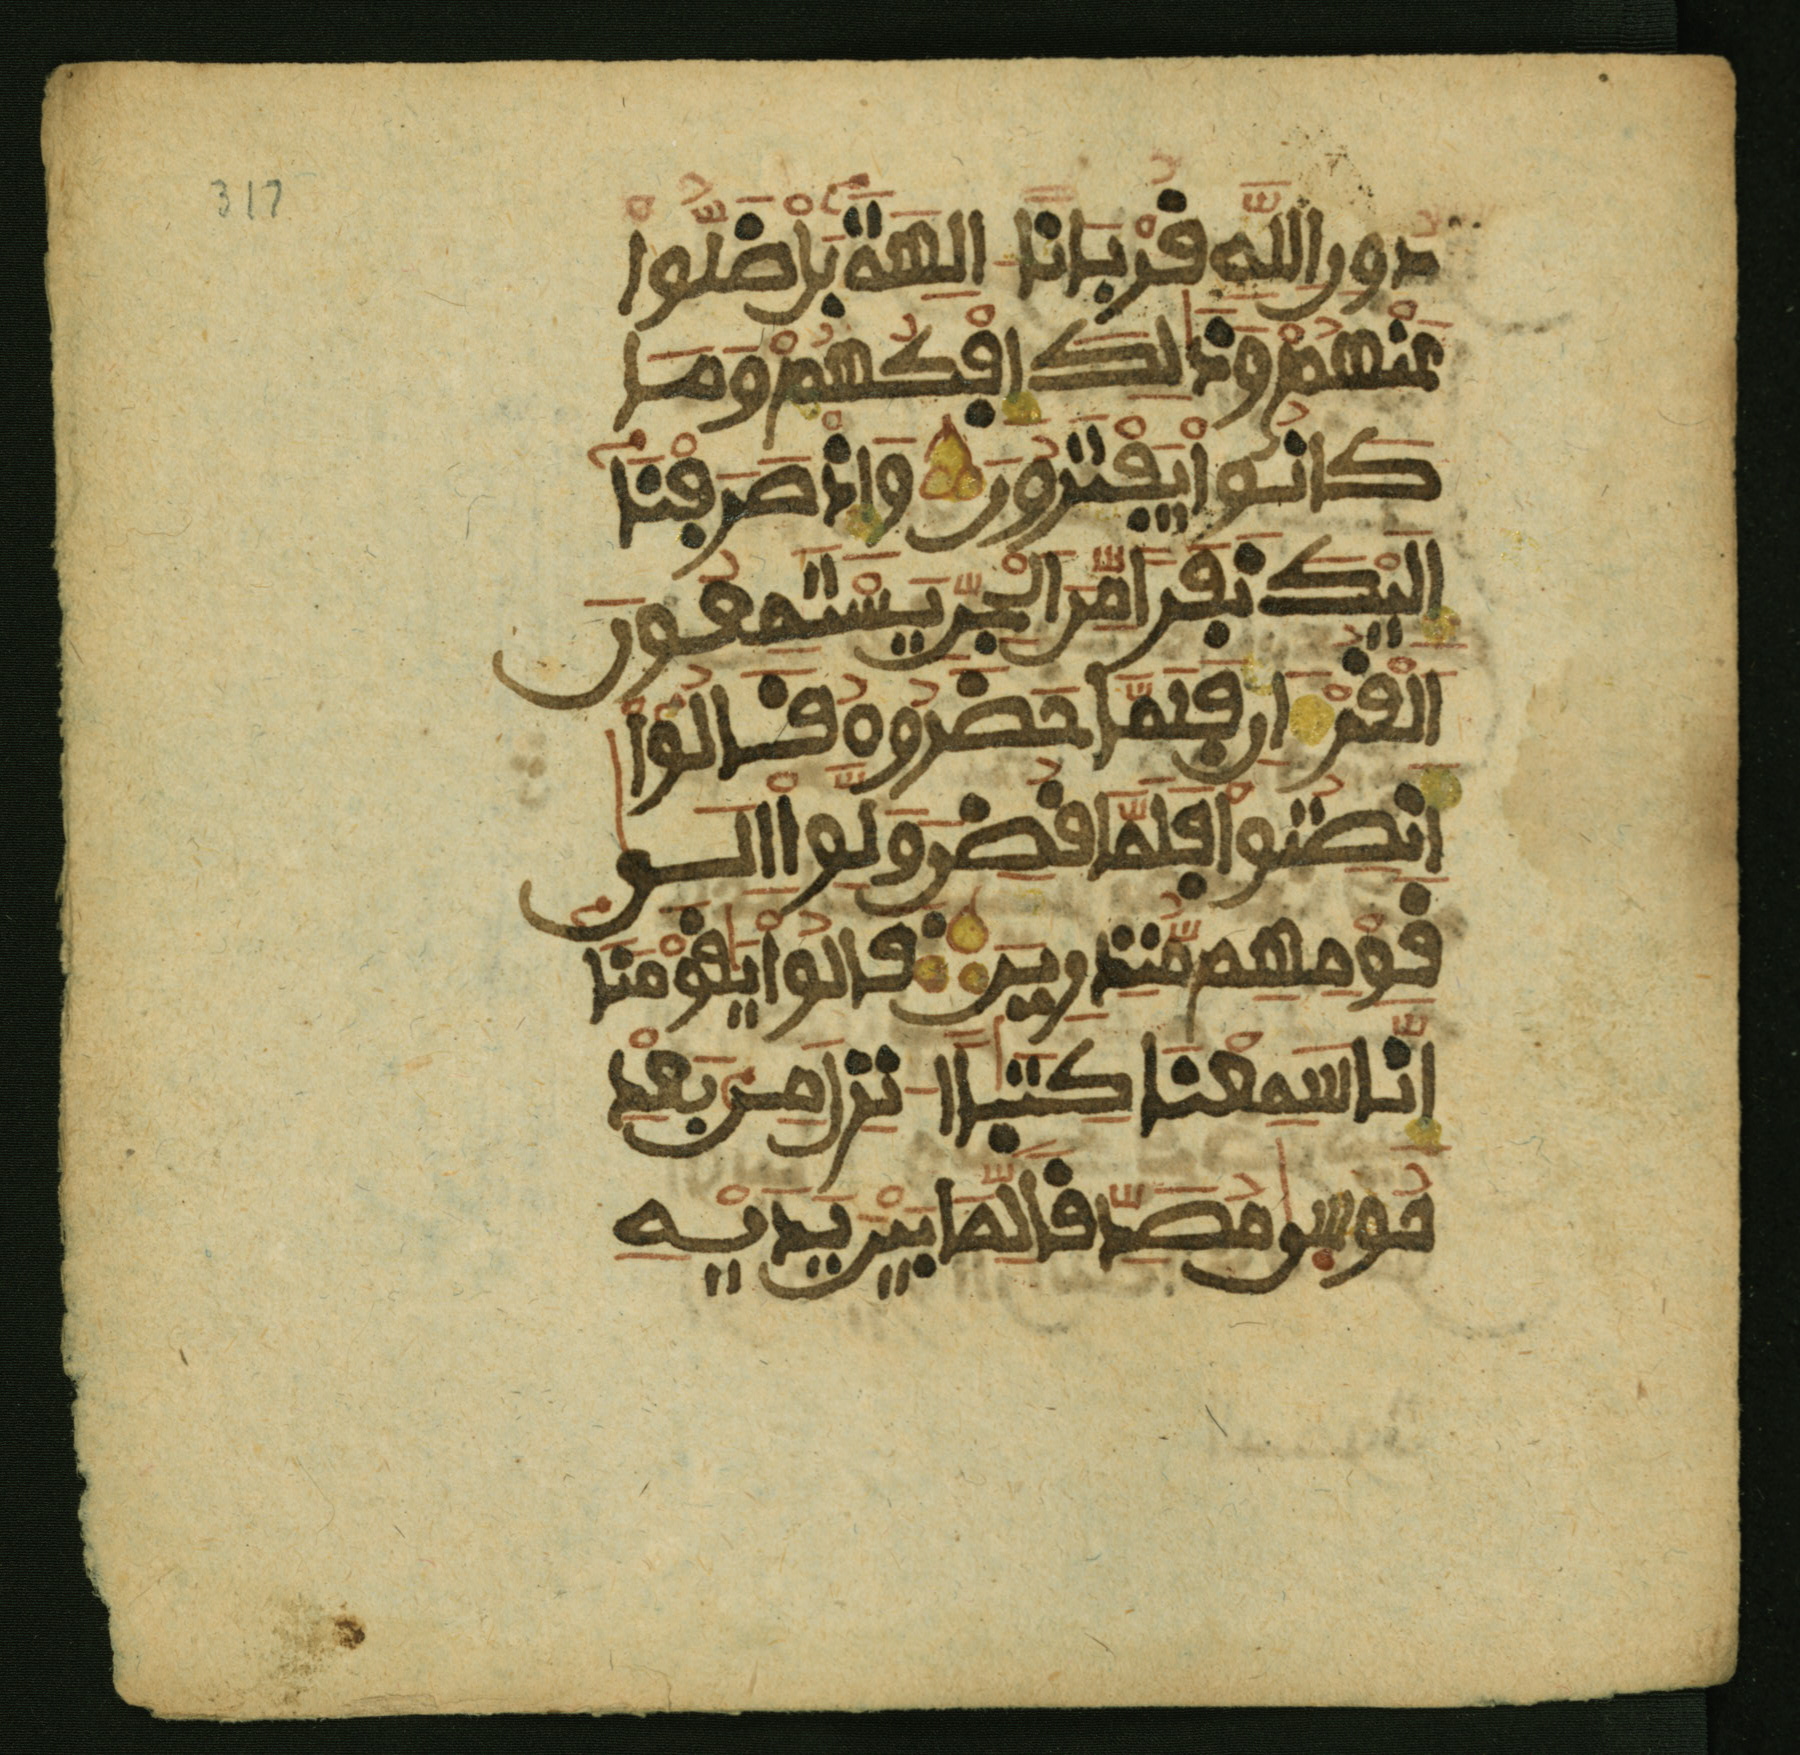 317
دُونِ اللَّهِ قُرْبَانًا اٰلِهَةً بَلْ ضَلُّوا
عَنْهُمْ وَذَٰلِكَ إِفْكُهُمْ وَمَا
كَانُوا يَفْتَرُونَ وَإِذْ صَرَفْنَا
إِلَيْكَ نَفَرًا مِّنَ الْجِنِّ يَسْتَمِعُونَ
الْقُرْءَانَ فَلَمَّا حَضَرُوهُ قَالُوا
أَنصِتُوا فَلَمَّا قُضِيَ وَلَّوْا إِلَىٰ
قَوْمِهِم مُّنذِرِينَ قَالُوا يَٰقَوْمَنَا
إِنَّا سَمِعْنَا كِتَٰبًا أُنزِلَ مِن بَعْدِ
مُوسَىٰ مُصَدِّقًا لِّمَا بَيْنَ يَدَيْهِ